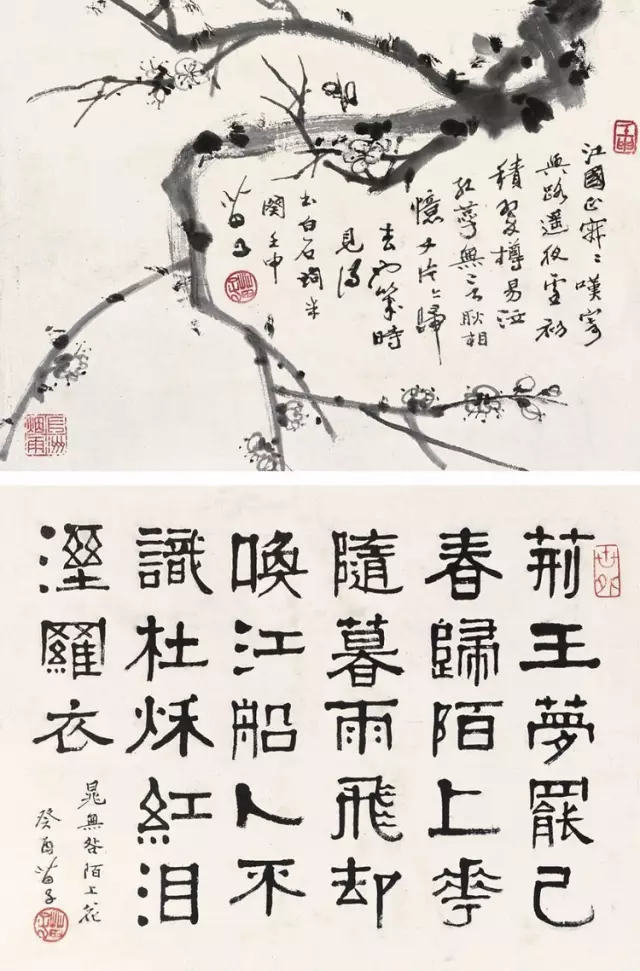 江國正寂〻嘆寄
與路遙夜雪初
積翠樽易泣
紅萼無言耿相
憶又片片歸
去也幾時
見得
書白石詞半
闋壬申
苗子
荊王夢罷已
春歸陌上花
隨暮雨飛却
喚江船人不
識杜秋紅泪
溼羅衣
晁無咎陌上花
癸酉苗子